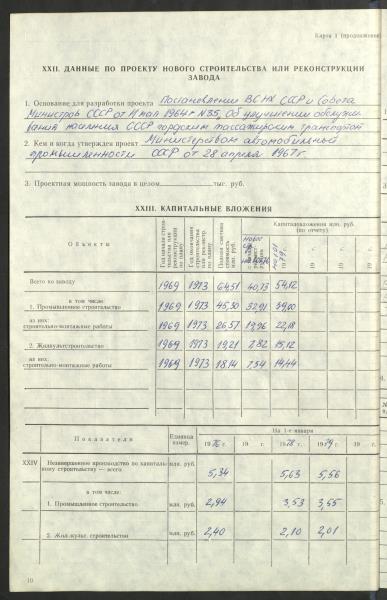 Карта 1 (продолжение)
XXII. ДАННЫЕ ПО ПРОЕКТУ НОВОГО СТРОИТЕЛЬСТВА ИЛИ РЕКОНСТРУКЦИИ
ЗАВОДА
1. Основание для разработки проекта Постановление ВСНХ СССР и Совета
Министров СССР от 11 мая 1964 г N35, Об улучшении обслужи
вания населения СССР городским пассажирским транспортом
2. Кем и когда утвержден проект Министерством автомобильной
промышленности СССР от 28 апреля 1967 г.
3. Проектная мощность завода в целом тыс. руб.
XXIII. КАПИТАЛЬНЫЕ ВЛОЖЕНИЯ
Объекты
Год начала строительства или реконструкции по плану
Год окончания строительства или реконстр. по плану
Полная сметная стоимость млн. руб.
Капиталовложения млн. руб.
(по отчету)
1979 г. 19 19 19
Всего по заводу 1969 1973 64,51 40,73 54,12
в том числе:
1. Промышленное строительство 1969 1973 45,30 32,91 39,00
из них:
строительно-монтажные работы 1969 1973 26,57 19,96 22,18
2. Жилкультстроительство 1969 1973 19,21 7,82 15,12
из них:
строительно-монтажные работы 1969 1973 18,14 7,54 14,44
Показатели Единица измер. На 1-е января
1976 г. 19 г. 1978 г. 1979 г.
XXIV Незавершенное производство по капитальному строительству — всего млн. руб. 5,34 5,63 5,56
в том числе:
1. Промышленное строительство млн. руб. 2,94 3,53 3,55
2. Жил.культ. строительство млн. руб. 2,40 2,10 2,01
10